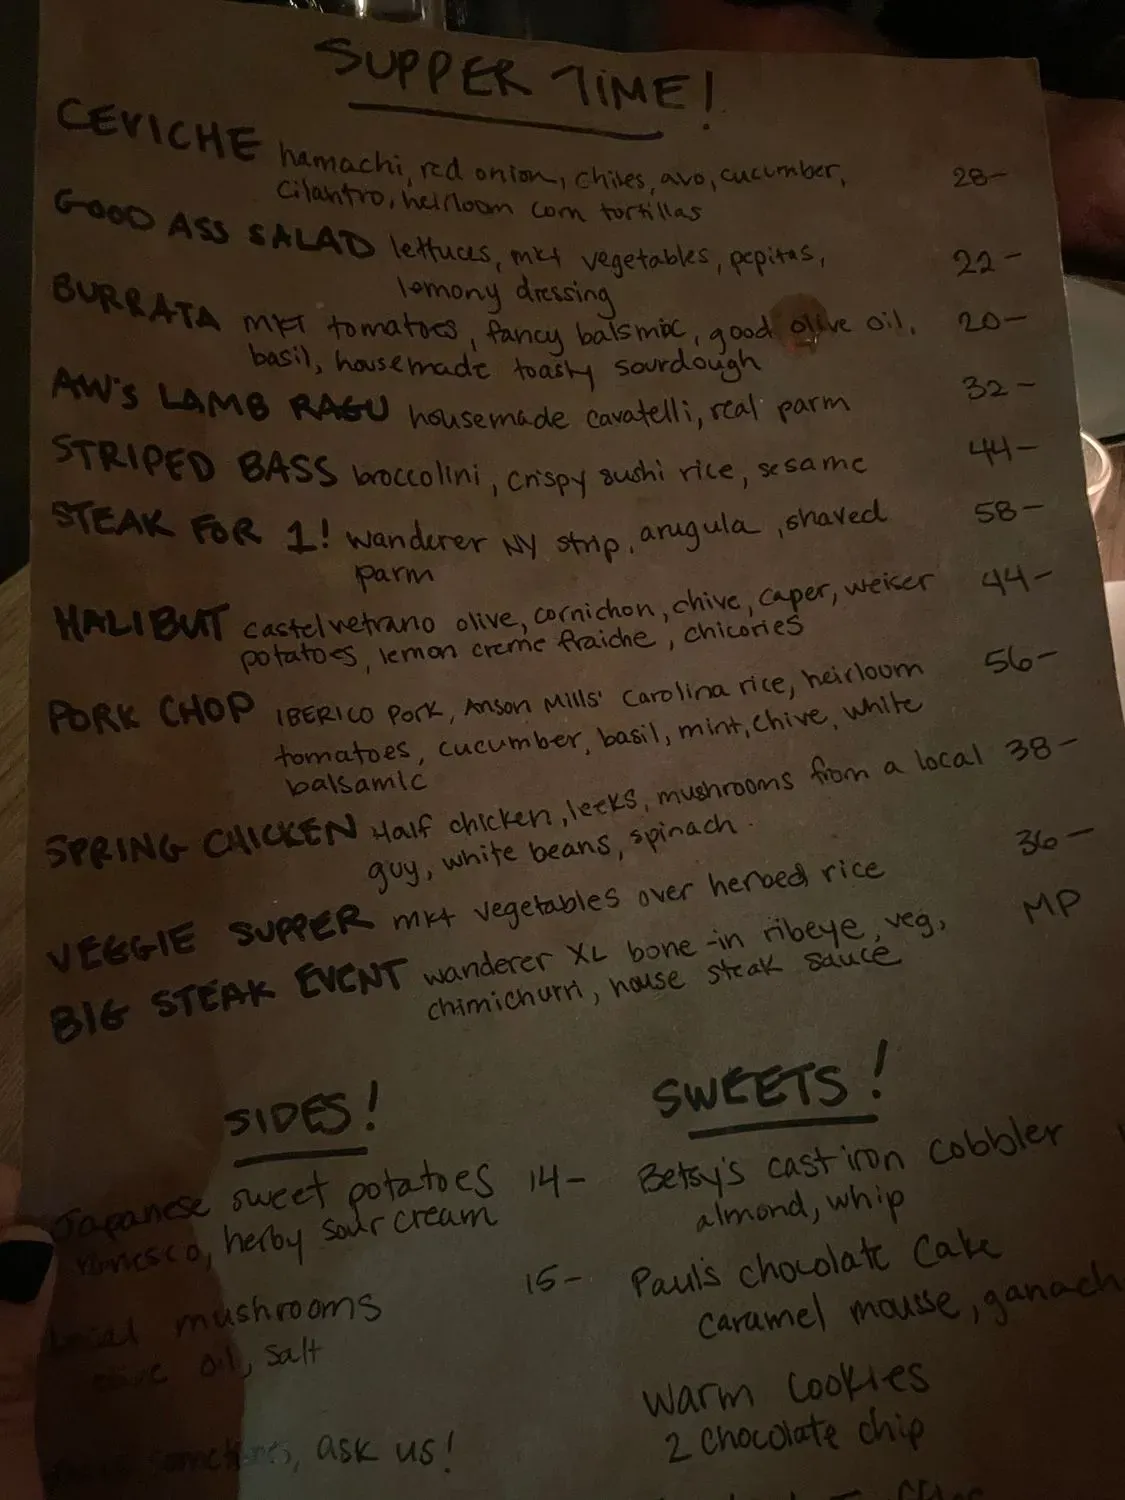 SUPPER TIME!
CEVICHE hamachi, red onion, chiles, avo, cucumber, 28-
cilantro, heirloom corn tortillas
GOOD ASS SALAD lettuces, mkt vegetables, pepitas, 22-
lemony dressing
BURRATA MKT tomatoes, fancy balsmic, good olive oil, 20-
basil, housemade toasty sourdough
AW's LAMB RAGU housemade cavatelli, real parm 32-
STRIPED BASS broccolini, crispy sushi rice, sesame 44-
STEAK FOR 1! wanderer NY strip, arugula, shaved 58-
parm
HALIBUT castelvetrano olive, cornichon, chive, caper, weiser 44-
potatoes, lemon creme fraiche, chicories
PORK CHOP IBERICO PORK, Anson Mills' Carolina rice, heirloom 56-
tomatoes, cucumber, basil, mint, chive, white
balsamic
SPRING CHICKEN Half chicken, leeks, mushrooms from a local 38-
guy, white beans, spinach.
VEGGIE SUPPER mkt vegetables over herbed rice 36-
BIG STEAK EVENT wanderer XL bone-in ribeye, veg, MP
chimichurri, house steak sauce
SIDES!
Japanese sweet potatoes 14-
romesco, herby sour cream
Local mushrooms 15-
olive oil, salt
ask us!
SWEETS!
Betsy's cast iron cobbler
almond, whip
Paul's chocolate cake
caramel mousse, ganach
Warm cookies
2 chocolate chip